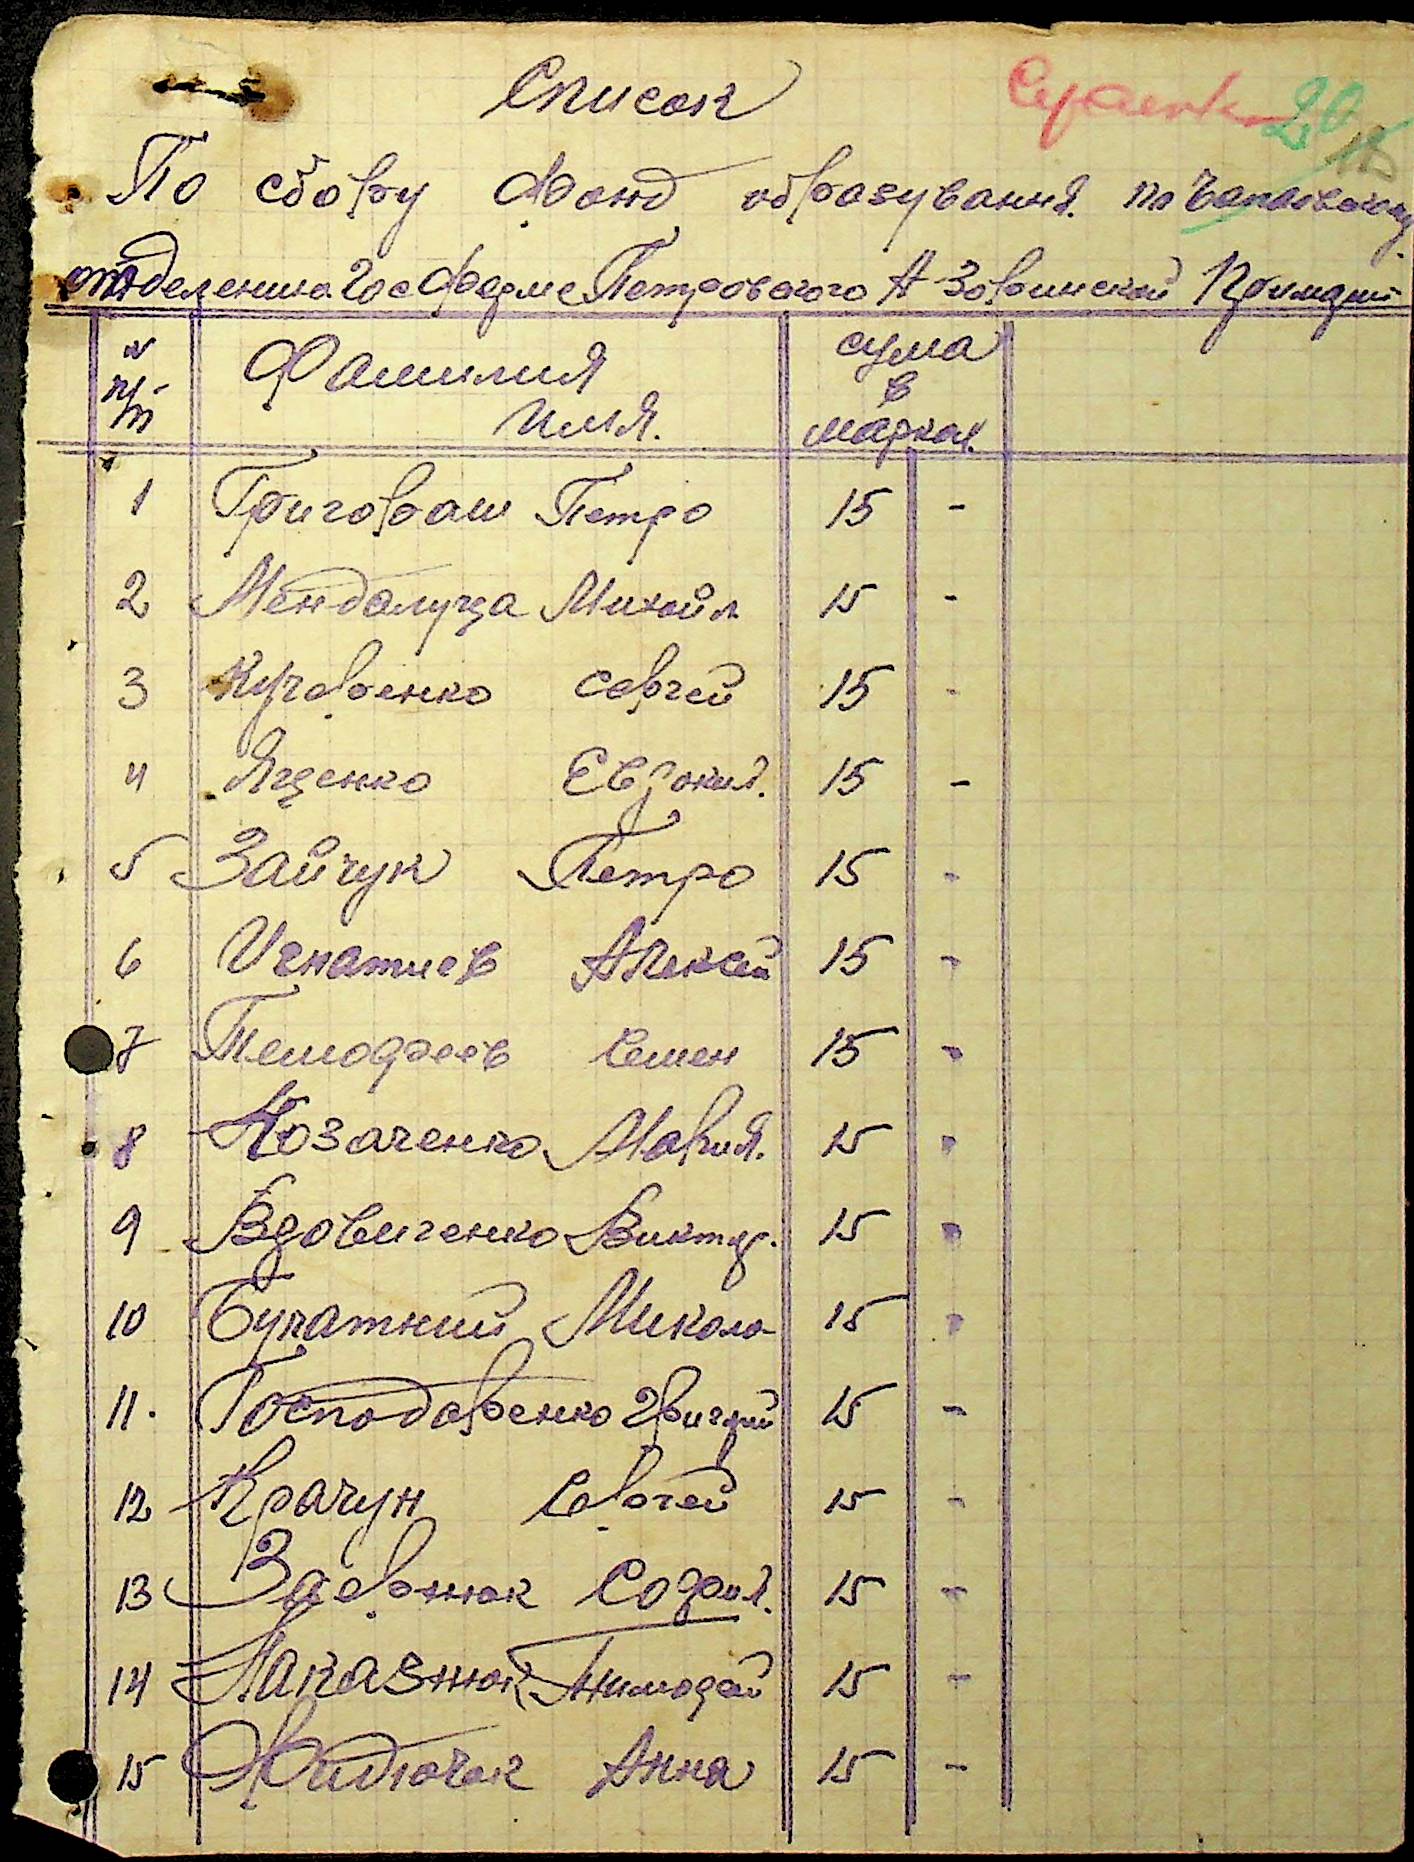 Список
20
По сбору Фонд образування по Чапаевскому
отделению Гос Ферме Петровского
N п/п Фамилия Имя. сума в марках
1 Григораш Петро 15 -
2 Мендалуца Михайл 15 -
3 Кучеренко Сергей 15 -
4 Яценко Евдокия. 15 -
5 Зайчук Петро 15 -
6 Игнатиев Алексей 15 -
7 Темофеев Семен 15 -
8 Козаченко Мария. 15 -
9 Вдовиченко Виктор. 15 -
10 Бучатний Микола 15 -
11. Господаренко Григорий 15 -
12 Крачун Сергей 15 -
13 Заернюк София. 15 -
14 Тимофей 15 -
15 Анна 15 -